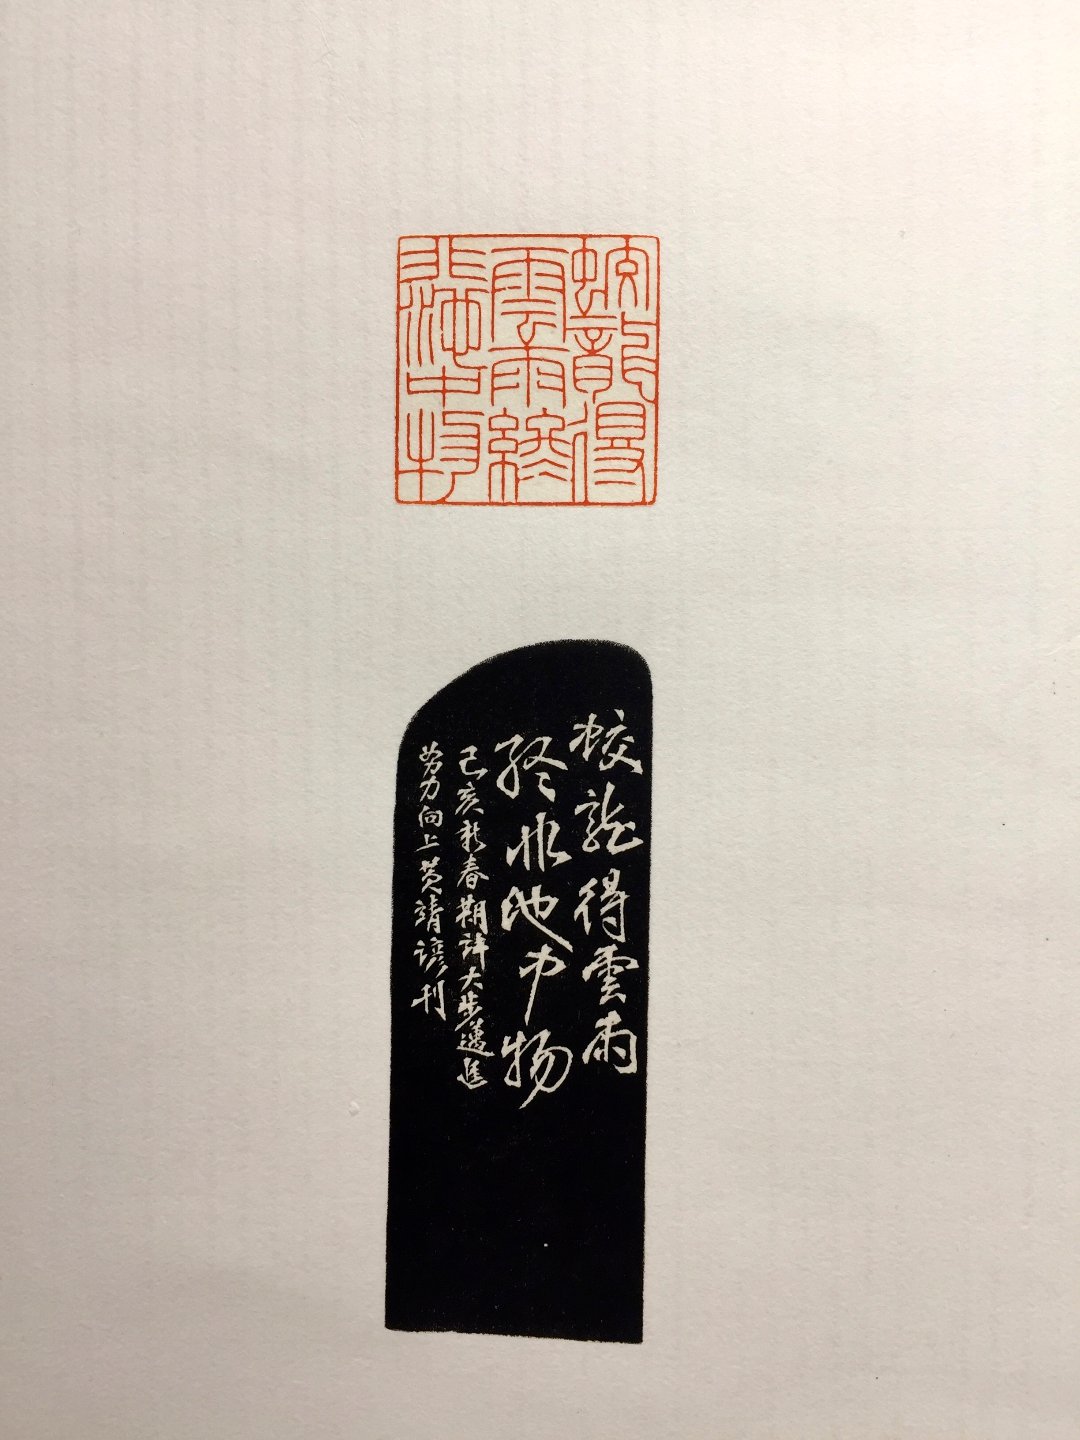 蛟龍得
雲雨終
非池中物
蛟龍得雲雨
終非池中物
己亥新春期許大步邁進
努力向上黃靖諺刊